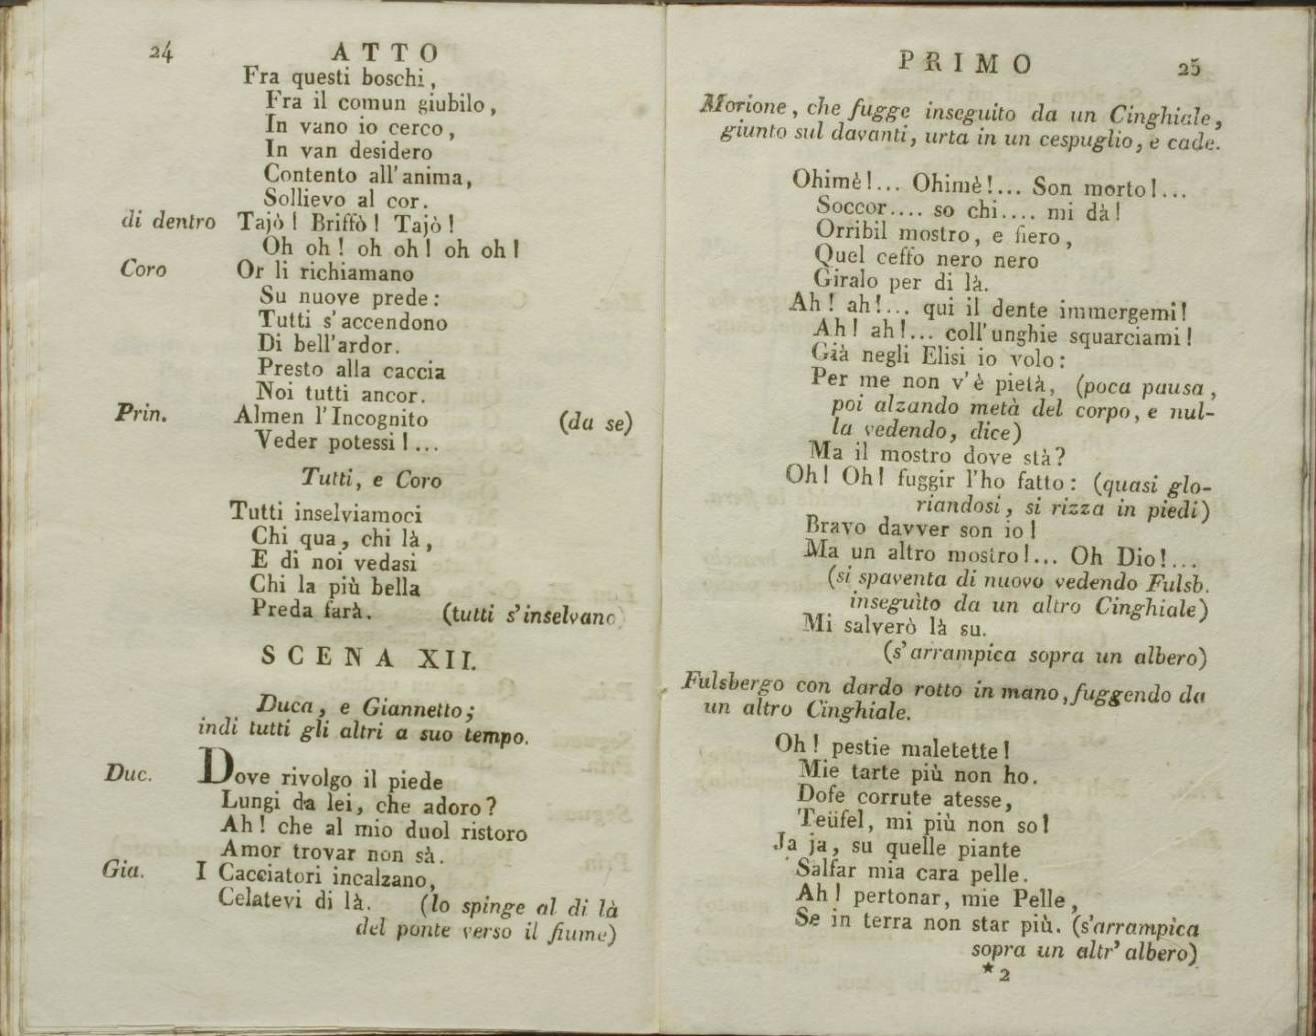 24 ATTO
Fra questi boschi,
Fra il comun giubilo,
In vano io cerco,
In van desidero
Contento all'anima,
Sollievo al cor.
di dentro Tajò! Briffò! Tajò!
Oh oh! oh oh! oh oh!
Coro Or li richiamano
Su nuove prede:
Tutti s'accendono
Di bell'ardor.
Presto alla caccia
Noi tutti ancor.
Prin. Almen l'Incognito (da se)
Veder potessi!...
Tutti, e Coro
Tutti inselviamoci
Chi qua, chi là,
E di noi vedasi
Chi la più bella
Preda farà. (tutti s'inselvano)
SCENA XII.
Duca, e Giannetto;
indi tutti gli altri a suo tempo.
Duc. Dove rivolgo il piede
Lungi da lei, che adoro?
Ah! che al mio duol ristoro
Amor trovar non sà.
Gia. I Cacciatori incalzano,
Celatevi di là. (lo spinge al di là
del ponte verso il fiume)
PRIMO 25
Morione, che fugge inseguito da un Cinghiale,
giunto sul davanti, urta in un cespuglio, e cade.
Ohimè!... Ohimè!... Son morto!...
Soccor.... so chi.... mi dà!
Orribil mostro, e fiero,
Quel ceffo nero nero
Giralo per di là.
Ah! ah!... qui il dente immergemi!
Ah! ah!... coll'unghie squarciami!
Già negli Elisi io volo:
Per me non v'è pietà, (poca pausa,
poi alzando metà del corpo, e nul-
la vedendo, dice)
Ma il mostro dove stà?
Oh! Oh! fuggir l'ho fatto: (quasi glo-
riandosi, si rizza in piedi)
Bravo davver son io!
Ma un altro mostro!... Oh Dio!...
(si spaventa di nuovo vedendo Fulsb.
inseguito da un altro Cinghiale)
Mi salverò là su.
(s'arrampica sopra un albero)
Fulsbergo con dardo rotto in mano, fuggendo da
un altro Cinghiale.
Oh! pestie maletette!
Mie tarte più non ho.
Dofe corrute atesse,
Teüfel, mi più non so!
Ja ja, su quelle piante
Salfar mia cara pelle.
Ah! pertonar, mie Pelle,
Se in terra non star più. (s'arrampica
sopra un altr'albero)
* 2